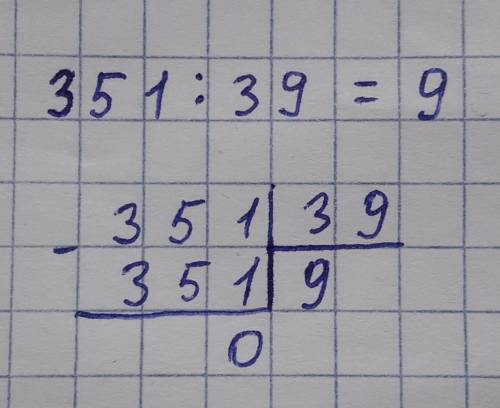 351:39 = 9
- 351 | 39
351 | 9
0